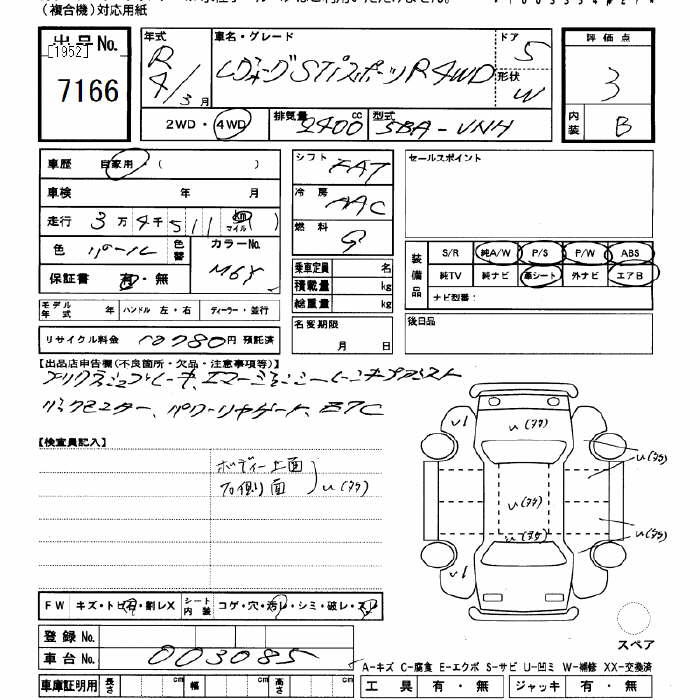 （複合機）対応用紙
出品No.
[1952]
7166
年式 R 4/3月
車名・グレード
レヴォーグSTIスポーツR 4WD
ドア 5
形状 W
2WD・4WD
排気量 2400 cc
型式 5BA-VNH
評価点
3
内装 B
車歴 自家用・（ ）
車検 年 月
走行 3万4千511 km マイル
色 パール 色替
カラーNo.
保証書 有・無
モデル年式 年 ハンドル 左・右 ディーラー・並行
リサイクル料金 12780円 預託済
シフト FAT
冷房 AAC
燃料 G
乗車定員 名
積載量 kg
総重量 kg
名変期限 月 日
セールスポイント
装備品
S/R 純A/W P/S P/W ABS
純TV 純ナビ 革シート 外ナビ エアB
ナビ型番：
後日品
【出品店申告欄（不良箇所・欠品・注意事項等）】
パワーリヤゲート、ETC
【検査員記入】
ボディー上面
右側面
U(アタ)
FW キズ・トビ石・割レX シート内装 コゲ・穴・汚レ・シミ・破レ・スレ
登録No.
車台No. 003085
車庫証明用 長さ cm 幅 cm 高さ cm
U1
U(アタ)
U(アタ)
U(アタ)
U(アタ)
U(アタ)
U1
スペア
A-キズ C-腐食 E-エクボ S-サビ U-凹ミ W-補修 XX-交換済
工具 有・無 ジャッキ 有・無